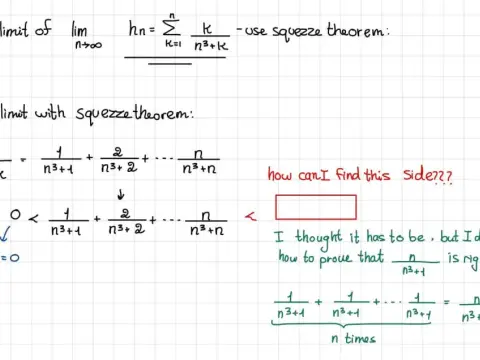 limit of lim n→∞ hn = Σ k=1 n k/n³+k - use squezze theorem:
limit with squezze theorem:
= 1/n³+1 + 2/n³+2 + ... n/n³+n
how can I find this side???
0 < 1/n³+1 + 2/n³+2 + ... n/n³+n <
= 0
I thought it has to be, but I
how to prove that n/n³+1 is
1/n³+1 + 1/n³+1 + ... 1/n³+1 =
n times